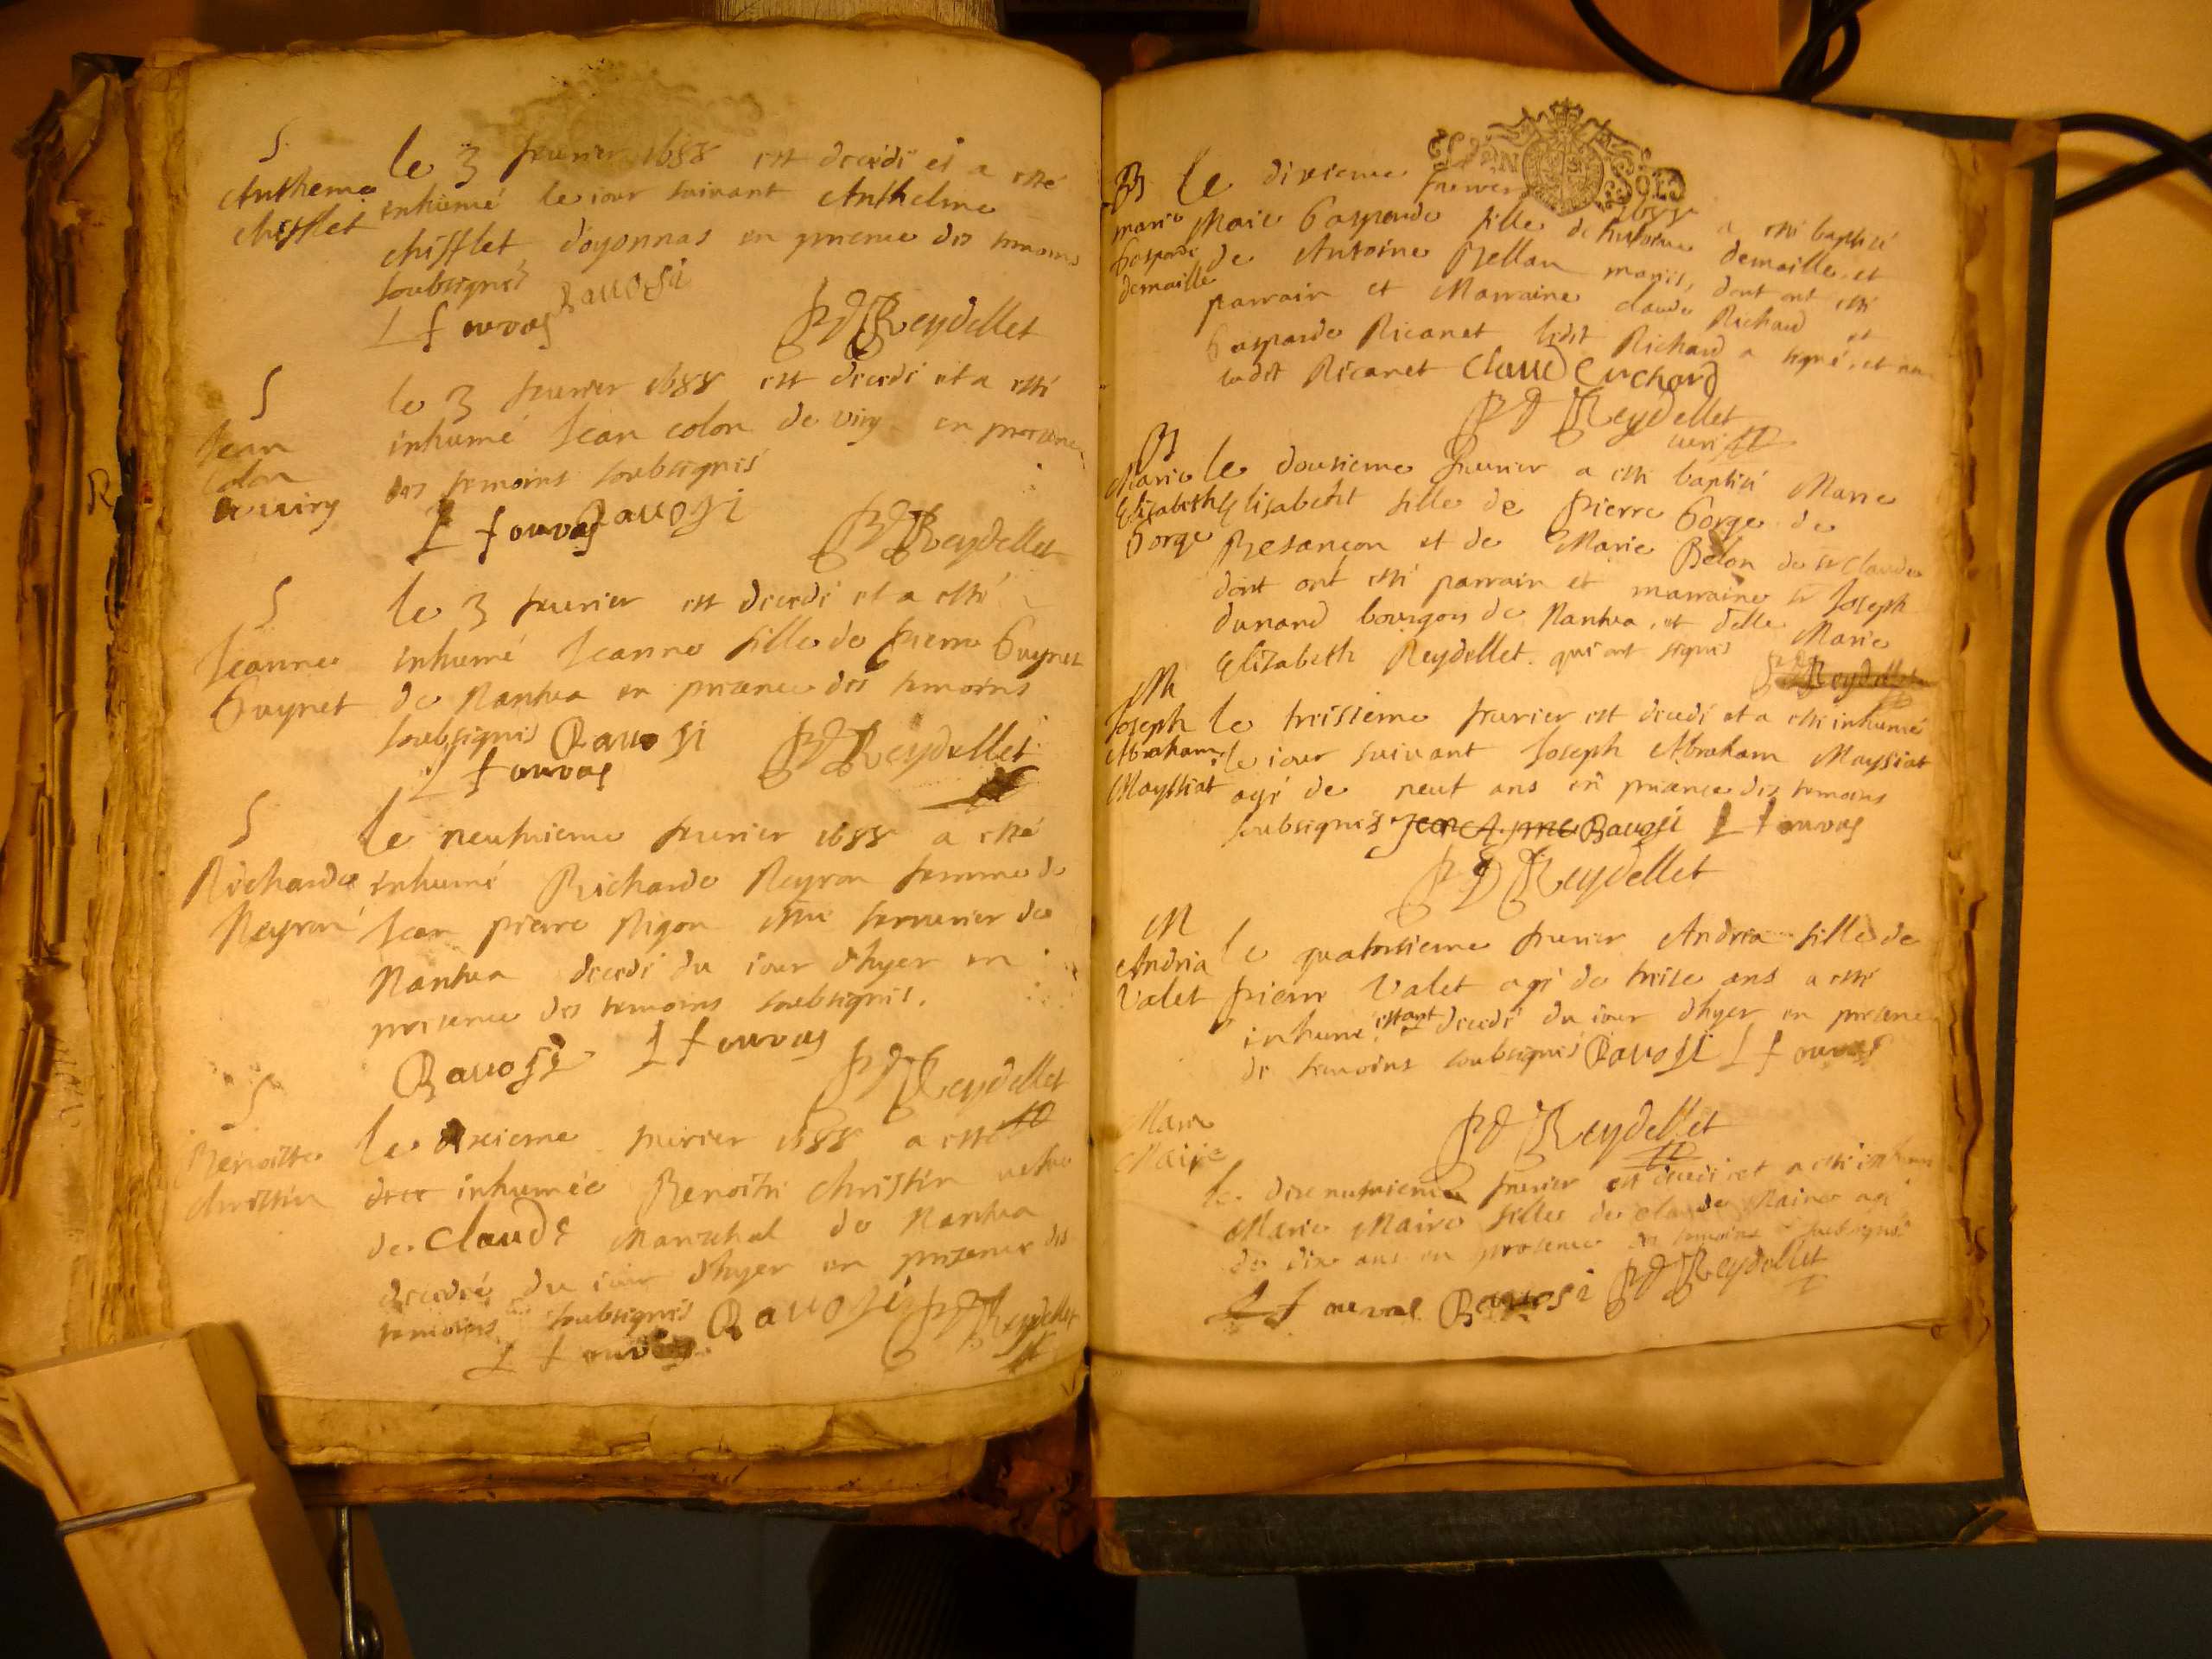 S
Anthema
chifflet
le 3 feurier 1688 est decedé et a esté
inhumé le iour suivant Anthelme
chifflet d'oyonnas en presence des temoins
soubsignés Ravosi
L f ouvas P D Reydellet
S
Jean
colon
de viry
le 3 feurier 1688 est decedé et a esté
inhumé Jean colon de viry en presence
des temoins soubsignés
L f ouvas Ravosi
P D Reydellet
S
Jeanne
Guynet
le 3 feurier est decedé et a esté
inhumé Jeanne fille de pierre Guynet
de Nantua en presence des temoins
soubsignés Ravosi P D Reydellet
L f ouvas
S
Richarde
Neyron
le neufuieme feurier 1688 a esté
inhumé Richarde Neyron femme de
Jean pierre Nigon serrurier de
Nantua decedé du iour d'hyer en
presence des temoins soubsignés.
Ravosi L f ouvas
P D Reydellet
S
Benoitte
christin
le dixieme feurier 1688 a esté
inhumée Benoite christin
de Claude Mareschal de Nantua
decedée du iour d'hyer en presence des
temoins soubsignés Ravosi P D Reydellet
L f ouvas
B
marie
Gasparde
demaille
le dixieme feurier 1688 a esté baptisé
Marie Gasparde fille de demaille et
de Antoine Bellan mariés, dont ont esté
parrain et Marraine claude Richard et
Gasparde Ricanet ledit Richard a signé, et
ladit Ricanet Claude richard
P D Reydellet
curé
B
Marie
Elizabeth
Gorge
le dousieme feurier a esté baptisé Marie
Elisabeht fille de pierre Gorge de
Besançon et de Marie Belon de st Claude
dont ont esté parrain et marraine sr Joseph
dunand bourgois de Nantua, et delle Marie
Elizabeth Reydellet qui ont signés
Reydellet
M
Joseph
Abraham
Mayssiat
le treisieme feurier est decedé et a esté inhumé
le iour suivant Joseph Abraham Maysiat
agé de neuf ans en presence des temoins
soubsignés Ravosi L f ouvas
P D Reydellet
M
Andria
Valet
le quatorsieme feurier Andria fille de
pierre Valet agé de treise ans a esté
inhumé, estant decedé du iour d'hyer en presence
de temoins soubsignés Ravosi L f ouvas
P D Reydellet
Marie
Maire
le dixneufuieme feurier est decedé et a esté
Marie Maire fille de claude Maire agé
de dix ans en presence des temoins soubsignés
L f ouvas Ravosi P D Reydellet